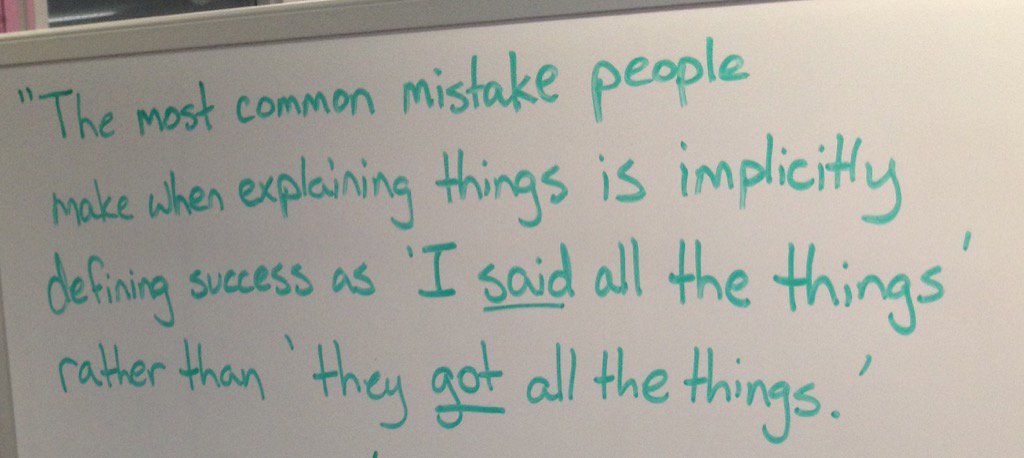 "The most common mistake people
make when explaining things is implicitly
defining success as 'I said all the things'
rather than 'they got all the things.'